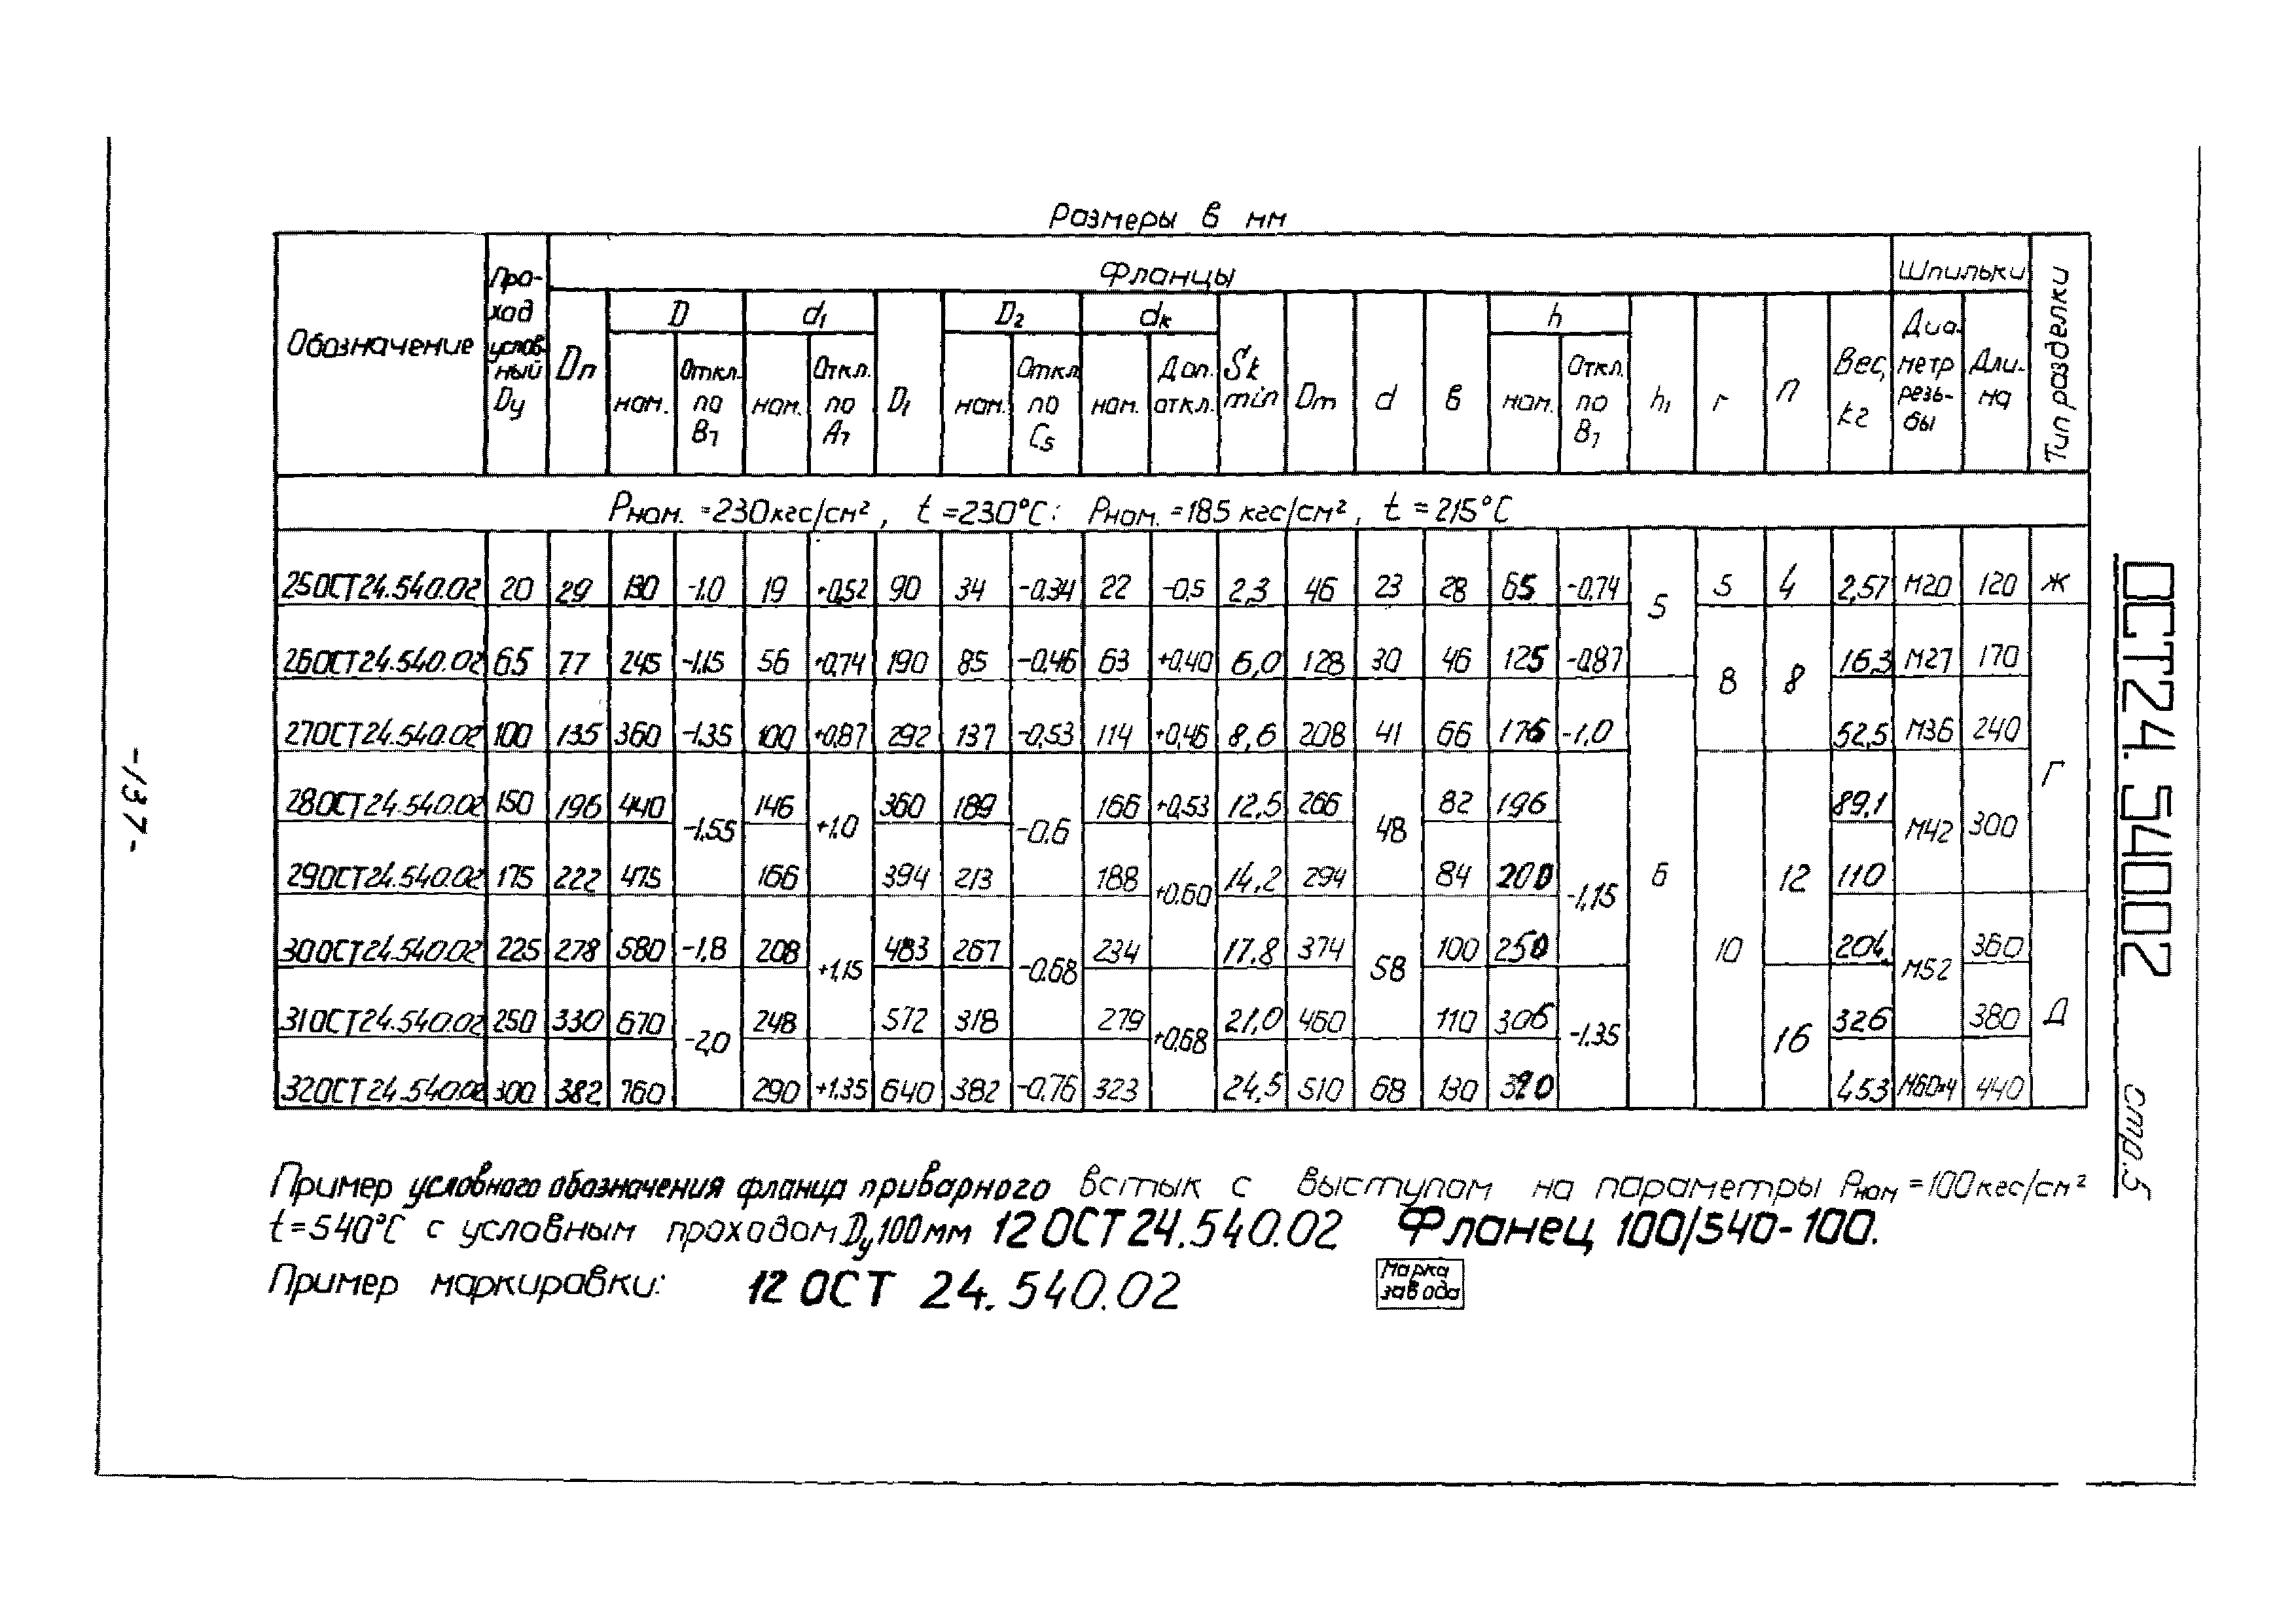 Размеры в мм
Обозначение Проход условный Dу Фланцы Шпильки Тип разделки
Dп D d1 D1 D2 dк Sк min Dm d в h h1 r п Вес, кг Диаметр резьбы Длина
ном. Откл. по В7 ном. Откл. по А7 ном. Откл по С5 ном. Доп. откл. ном. Откл. по В7
Рном. =230кгс/см², t =230°С: Рном. =185 кгс/см², t =215°С
25ОСТ24.540.02 20 29 130 -1.0 19 +0,52 90 34 -0.34 22 -0.5 2,3 46 23 28 65 -0.74 5 5 4 2,57 М20 120 Ж
26ОСТ24.540.02 65 77 245 -1.15 56 +0.74 190 85 -0.46 63 +0.40 6,0 128 30 46 125 -0.87 8 8 16,3 М27 170 Г
27ОСТ24.540.02 100 135 360 -1.35 100 +0.87 292 137 -0,53 114 +0,46 8,6 208 41 66 176 -1,0 6 52,5 М36 240
28ОСТ24.540.02 150 196 440 -1.55 146 +1.0 360 189 -0.6 166 +0.53 12,5 266 48 82 196 -1,15 10 12 89,1 М42 300
29ОСТ24.540.02 175 222 475 166 394 213 188 +0.60 14,2 294 84 200 110
30ОСТ24.540.02 225 278 580 -1,8 208 +1,15 483 267 -0.68 234 17.8 374 58 100 250 204 М52 360 Д
31ОСТ24.540.02 250 330 670 -2,0 248 572 318 279 +0,68 21,0 460 110 306 -1.35 16 326 380
32ОСТ24.540.02 300 382 760 290 +1.35 640 382 -0.76 323 24,5 510 68 130 320 453 М60х4 440
Пример условного обозначения фланца приварного встык с выступом на параметры Рном =100кгс/см²
t=540°С с условным проходом Dу 100мм 12 ОСТ24.540.02 Фланец 100/540-100.
Пример маркировки: 12 ОСТ 24.540.02
Марка
завода
ОСТ24.540.02 стр.5
-137-